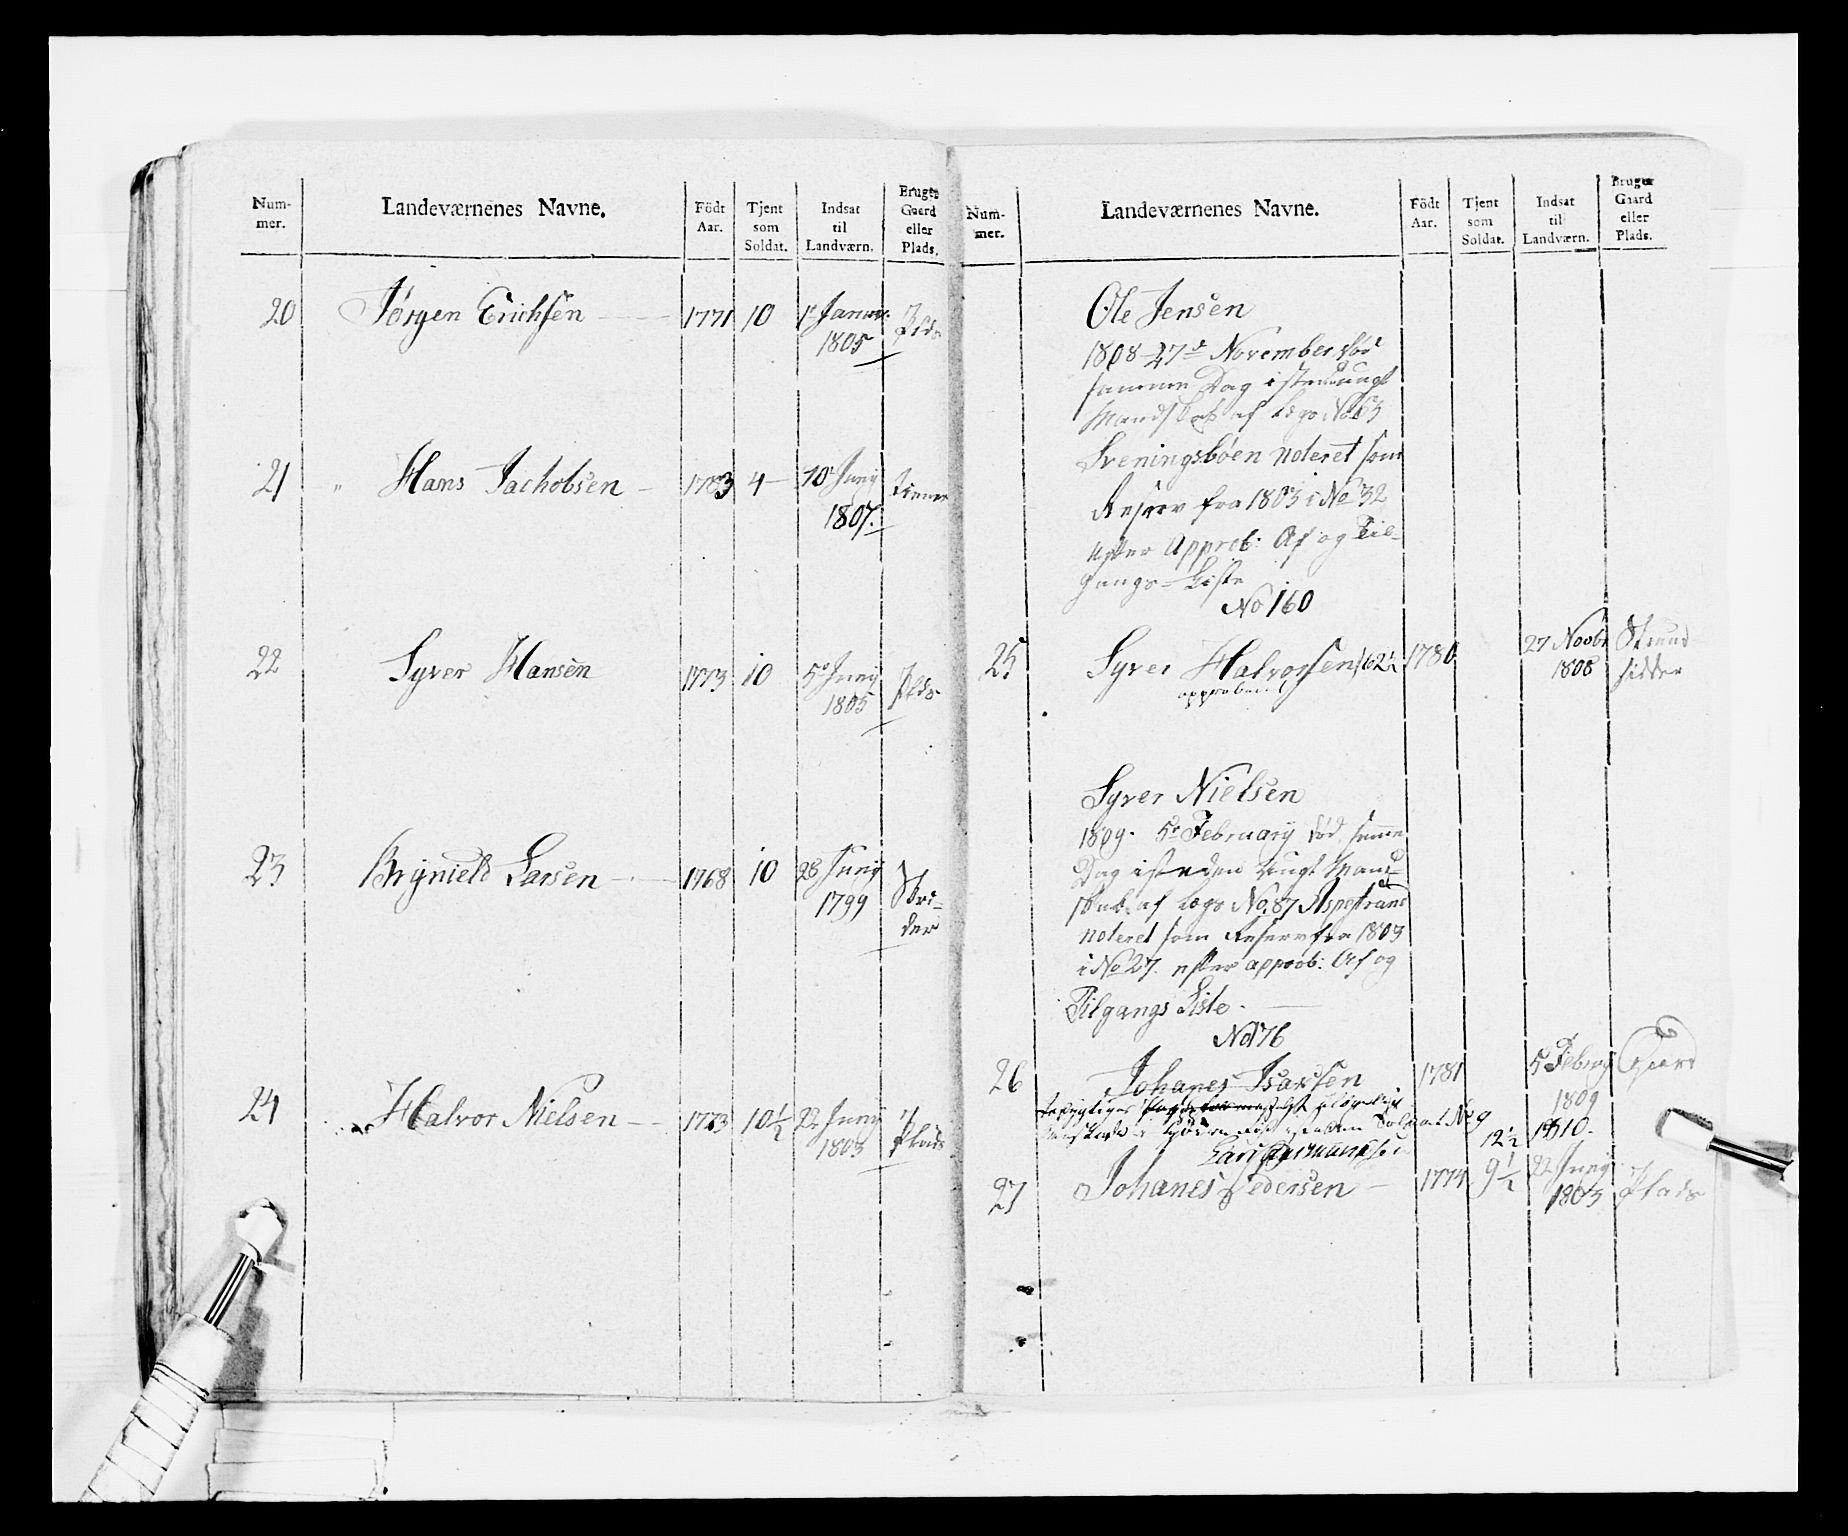 Num-
mer.
Landeværnenes Navne.
Födt
Aar.
Tjent
som
Soldat.
Indsat
til
Landværn.
Bruger
Gaard
eller
Plads.
20 Jørgen Erichsen 1771 10 1ste Januar:
1805
Plds
21 Hans Jachobsen 1783 4 10de Junij
1807.
tiener
22 Syver Hansen 1773 10 5te Junij
1805
Plds
23 Brynield Larsen 1768 10 28 Junij
1799
24 Halvor Nielsen 1773 10½ 22 Junij
1803
Plads
Num-
mer.
Landeværnenes Navne.
Födt
Aar.
Tjent
som
Soldat.
Indsat
til
Landværn.
Bruger
Gaard
eller
Plads.
Ole Jensen
1808 27de November død
samme Dag isteden ungt
Mandskab af Lægs No 63
Sveningsbøen noteret som
Reserv fra 1803 i No 32
efter Approb: Af og Til-
gangs-Liste
No 160
25 Syver Halvorsen 162½ 1780 27 Novbr
1808
Strand
sidder
approberet
Syver Nielsen
1809. 5te February død samme
Dag isteden ungt Mand-
skab af Lægs No. 87 Aspestrand
noteret som Reserv fra 1803
i No 27. efter approb: Af og
Tilgangs Liste.
No 176
26 Johanes Isaksen 1781 5 Febrpy
1809
Gaard
Soldat No 9
12½ 1810.
27 Johanes Pedersen 1774 9½ 22 Junij
1803
Plads